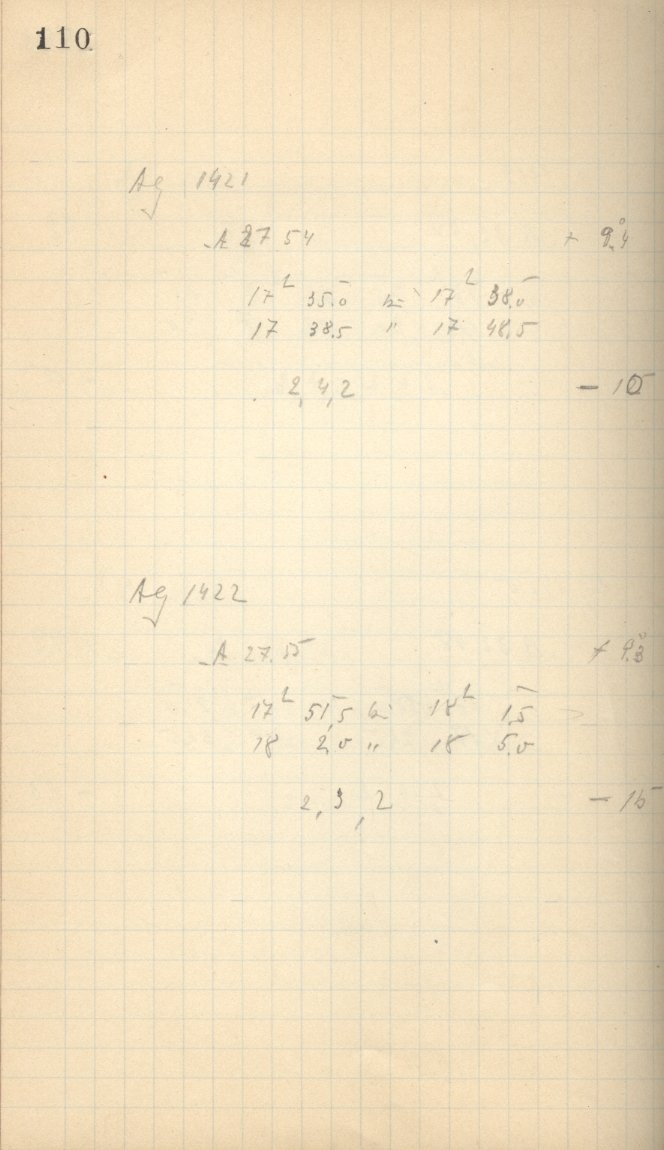 110
Ag 1421
A 27 54 + 9.°4
17h 35.0 bis 17h 38.0
17 38.5 " 17 48.5
2, 4, 2 - 15
Ag 1422
A 27.55 + 9.°3
17h 51,5 bis 18h 1.5
18 2,0 " 18 5.0
2, 3, 2 - 15